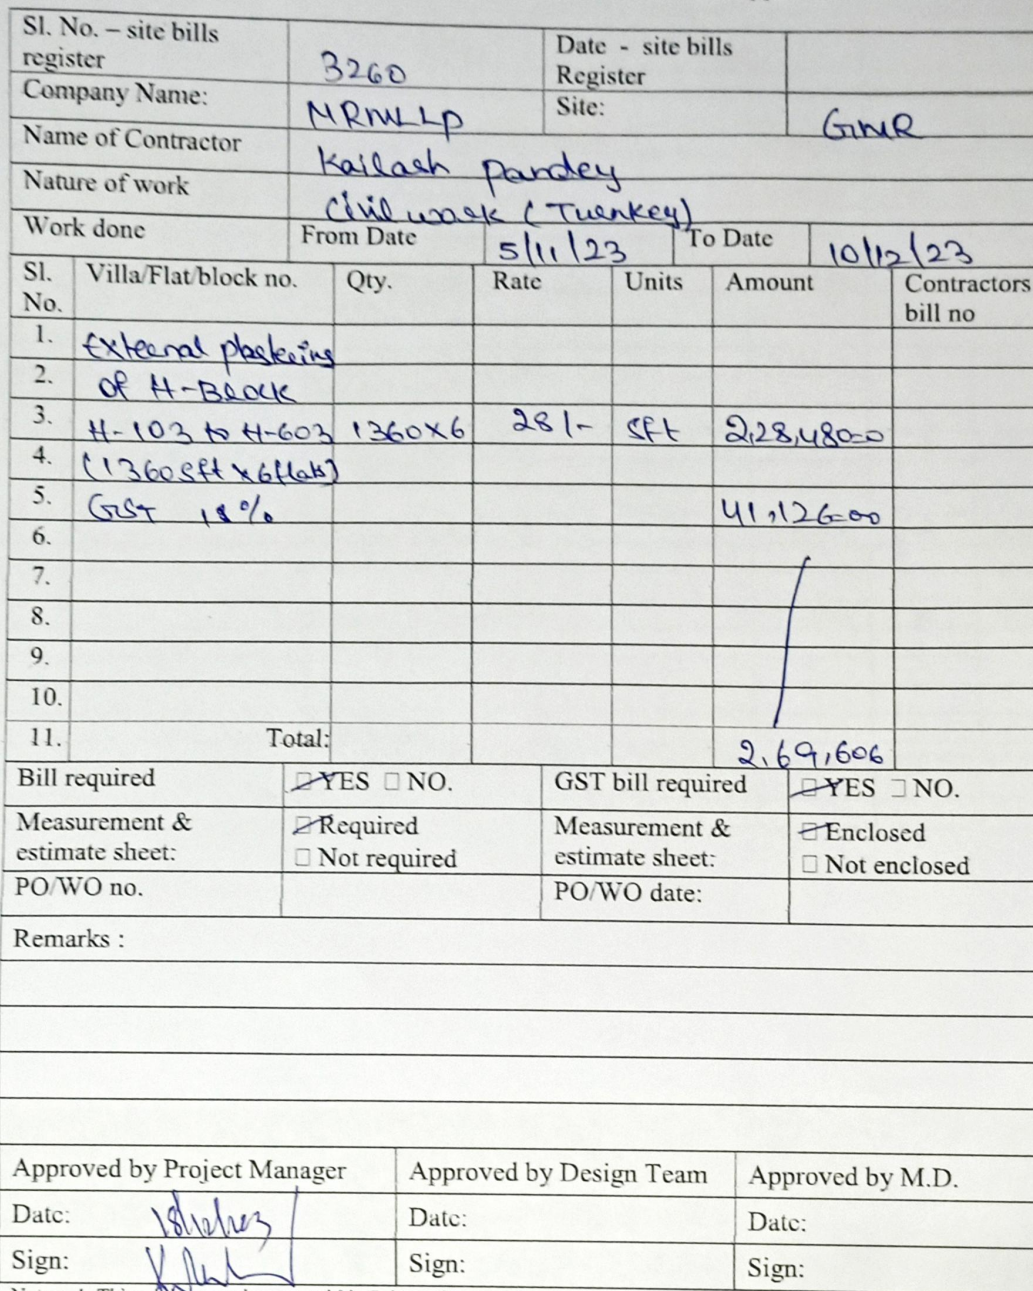 Sl. No. – site bills register 3260 Date - site bills Register
Company Name: MRMLLP Site: GMR
Name of Contractor Kailash Pandey
Nature of work Civil work (Turnkey)
Work done From Date 5/11/23 To Date 10/12/23
Sl. No. Villa/Flat/block no. Qty. Rate Units Amount Contractors bill no
1. External plastering
2. of H-Block
3. H-103 to H-603 1360x6 28/- sft 2,28,480=0
4. (1360sft x 6flats)
5. GST 18% 41,126=00
6.
7.
8.
9.
10.
11. Total: 2,69,606
Bill required ☑ YES ☐ NO. GST bill required ☑ YES ☐ NO.
Measurement & estimate sheet: ☑ Required ☐ Not required Measurement & estimate sheet: ☑ Enclosed ☐ Not enclosed
PO/WO no. PO/WO date:
Remarks :
Approved by Project Manager Approved by Design Team Approved by M.D.
Date: Date: Date:
Sign: Sign: Sign: